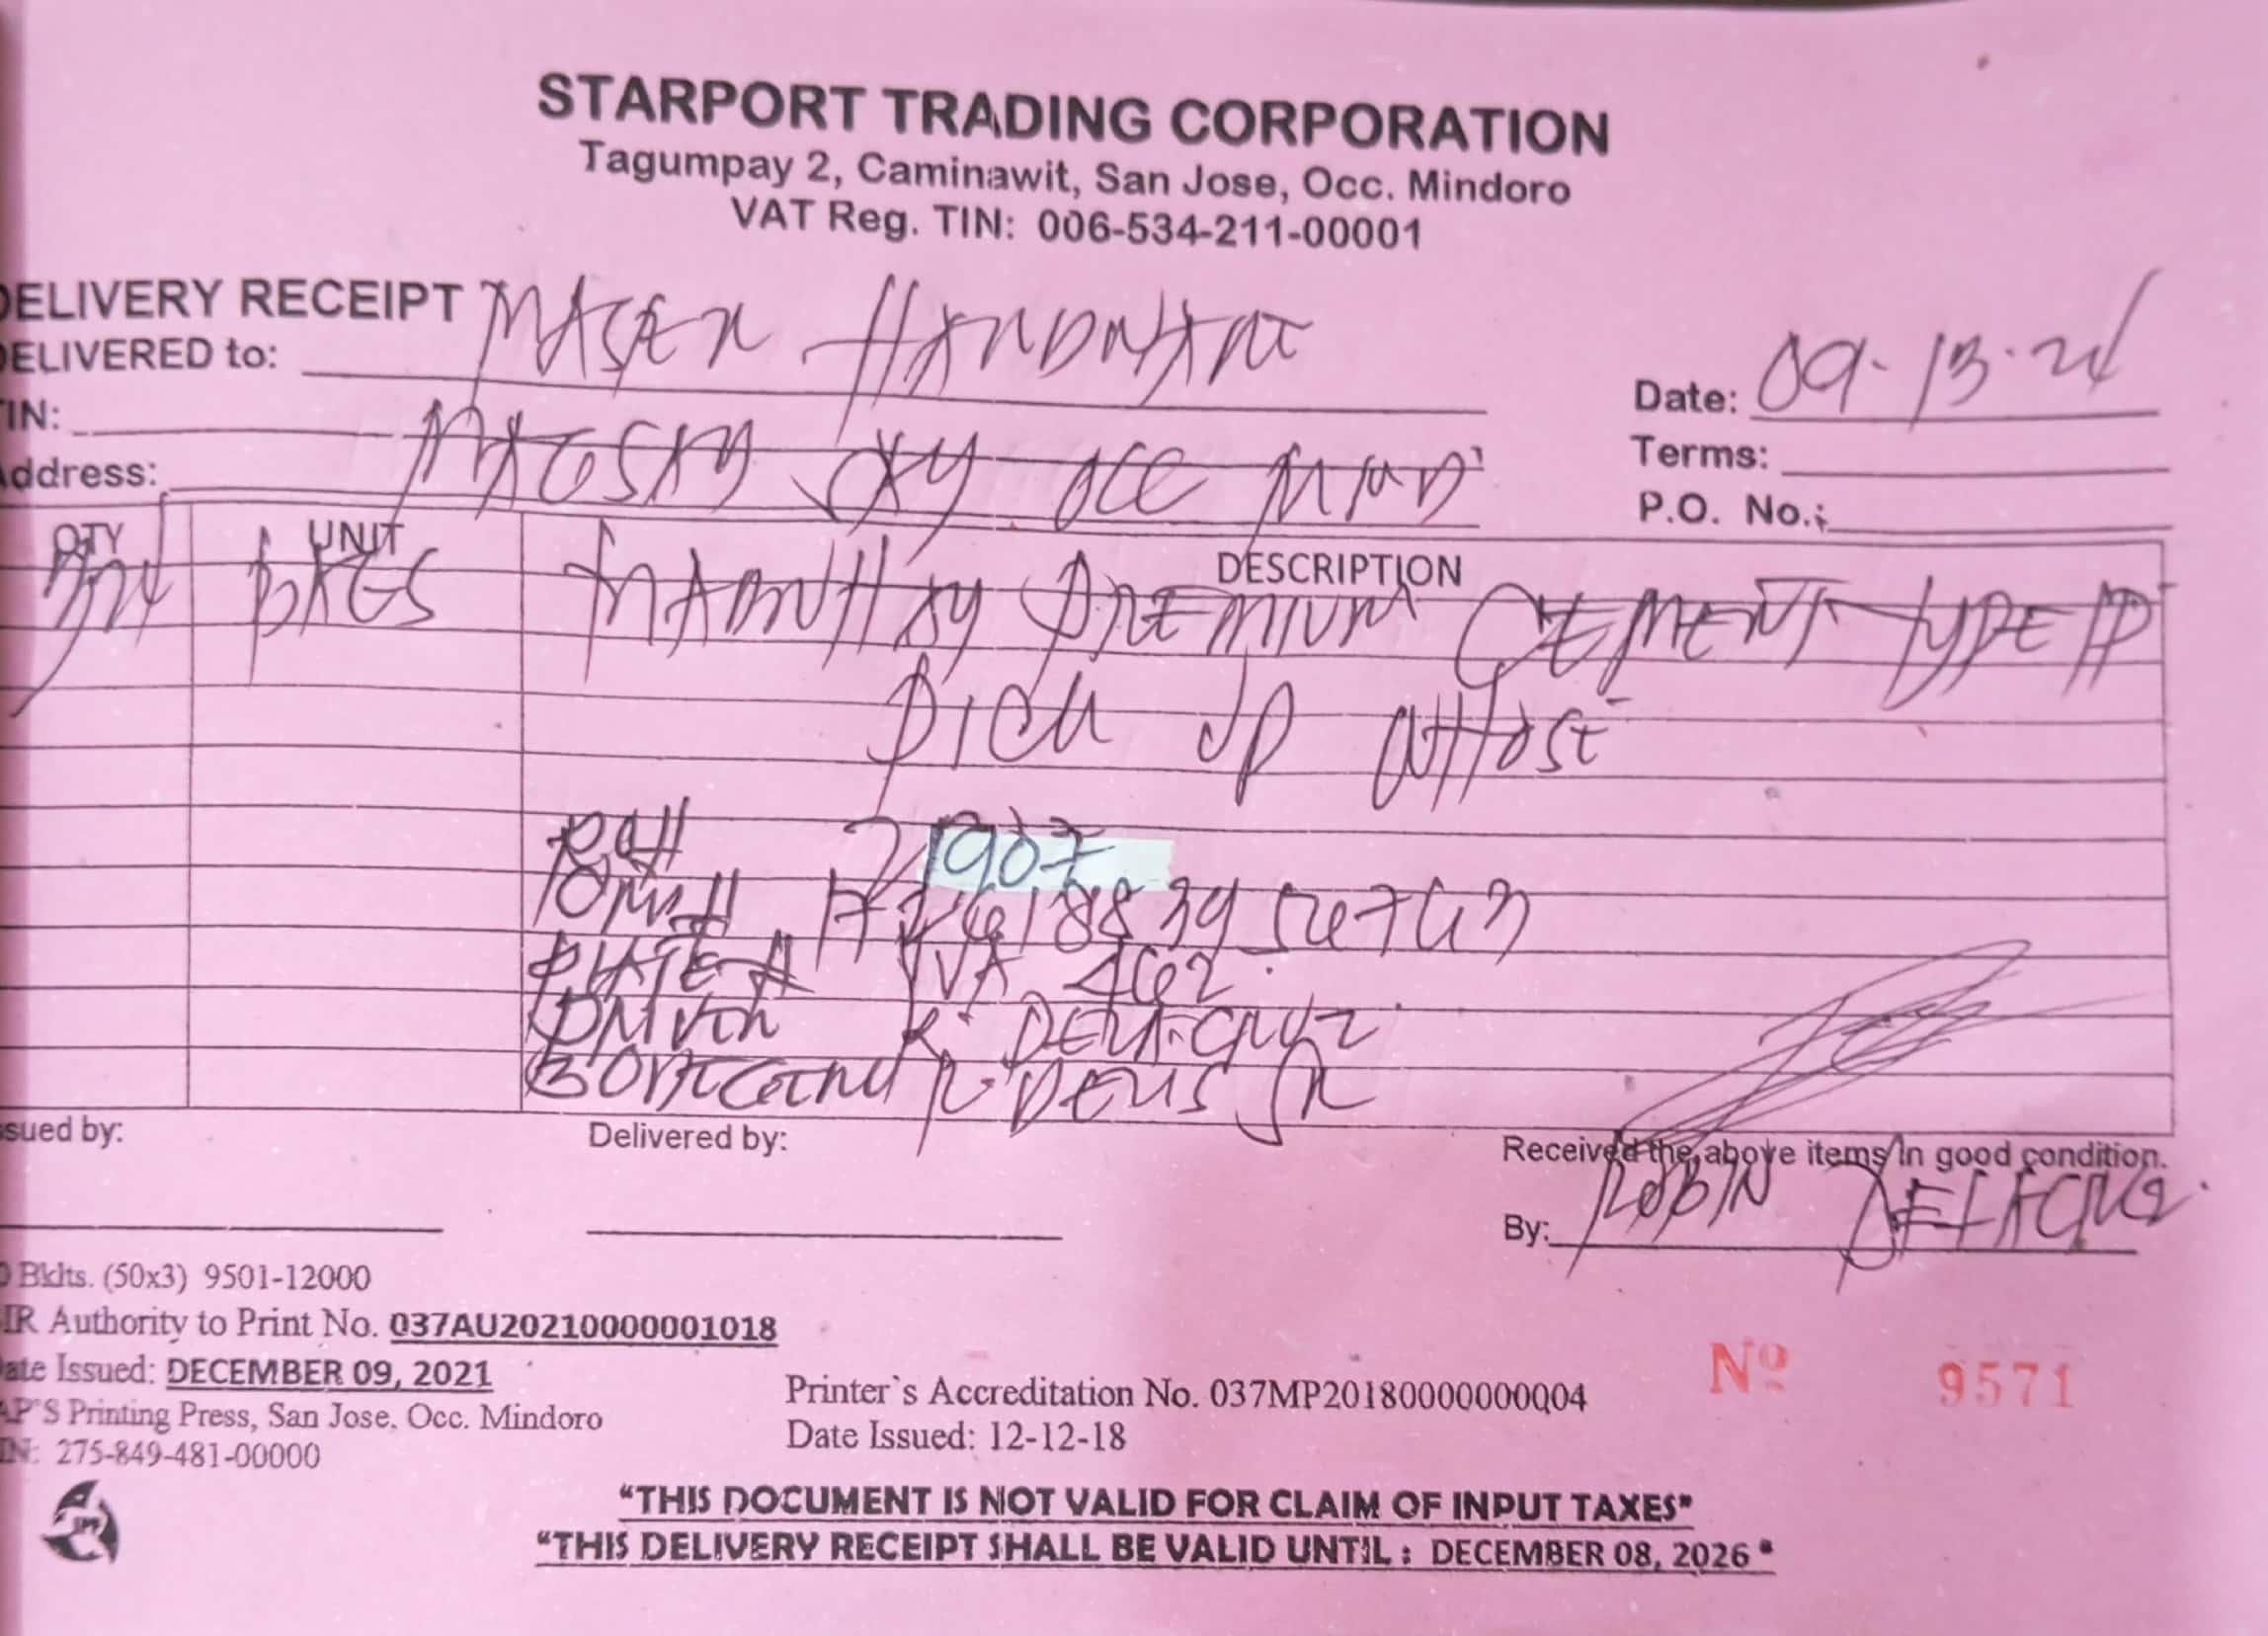 STARPORT TRADING CORPORATION
Tagumpay 2, Caminawit, San Jose, Occ. Mindoro
VAT Reg. TIN: 006-534-211-00001
DELIVERY RECEIPT
DELIVERED to: MASER HARDWARE
Date: 09-13-24
TIN:
Address: MAGSAY SAY OCC MIND
Terms:
P.O. No.:
QTY UNIT DESCRIPTION
BAGS PREMIUM CEMENT TYPE 1P
PICK UP
21907
PLATE # 
DRIVER R. DELA CRUZ
JR
Issued by: Delivered by:
Received the above items in good condition.
By: ROBIN DELA CRUZ
Bklts. (50x3) 9501-12000
BIR Authority to Print No. 037AU20210000001018
Date Issued: DECEMBER 09, 2021
AP'S Printing Press, San Jose, Occ. Mindoro
TIN: 275-849-481-00000
Printer's Accreditation No. 037MP20180000000004
Date Issued: 12-12-18
No 9571
"THIS DOCUMENT IS NOT VALID FOR CLAIM OF INPUT TAXES"
"THIS DELIVERY RECEIPT SHALL BE VALID UNTIL : DECEMBER 08, 2026"